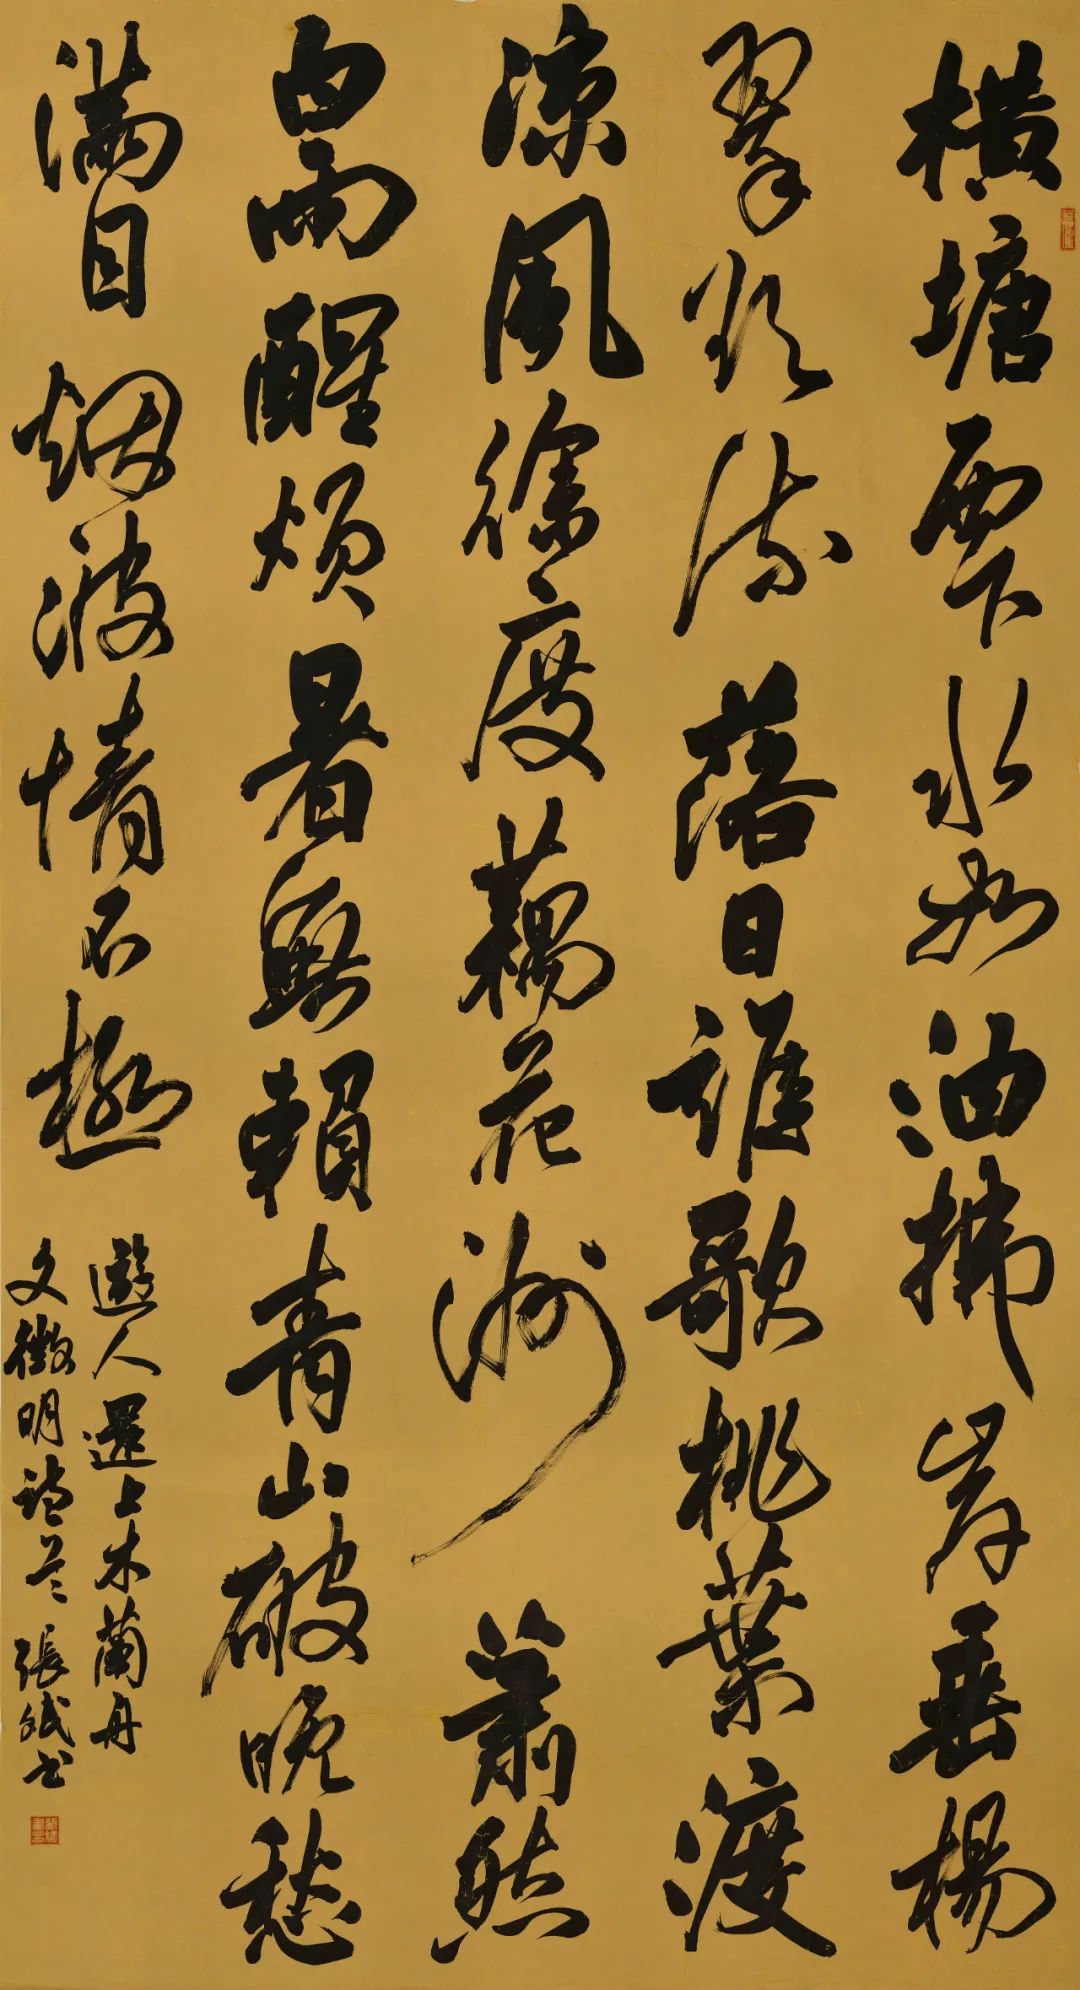 横塘西下水如油拂岸垂楊
翠欲流落日誰歌桃葉渡
涼風徐度藕花洲蕭然
白雨醒煩暑無賴青山破晚愁
滿目烟波情不極
遊人還上木蘭舟
文徵明詩 張斌書